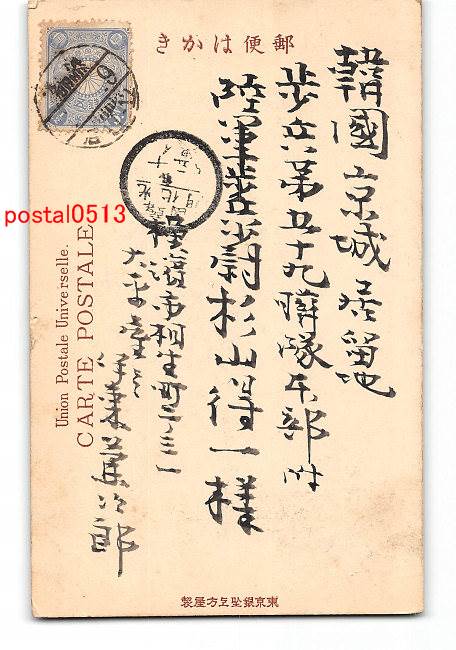 郵便はかき
韓國京城居留地
歩兵第五十九聯隊本部附
陸軍歩兵少尉杉山得一様
横濱市相生町二ノ三一
伊東萬次郎
Union Postale Universelle.
CARTE POSTALE
postal0513
東京銀座上方屋製